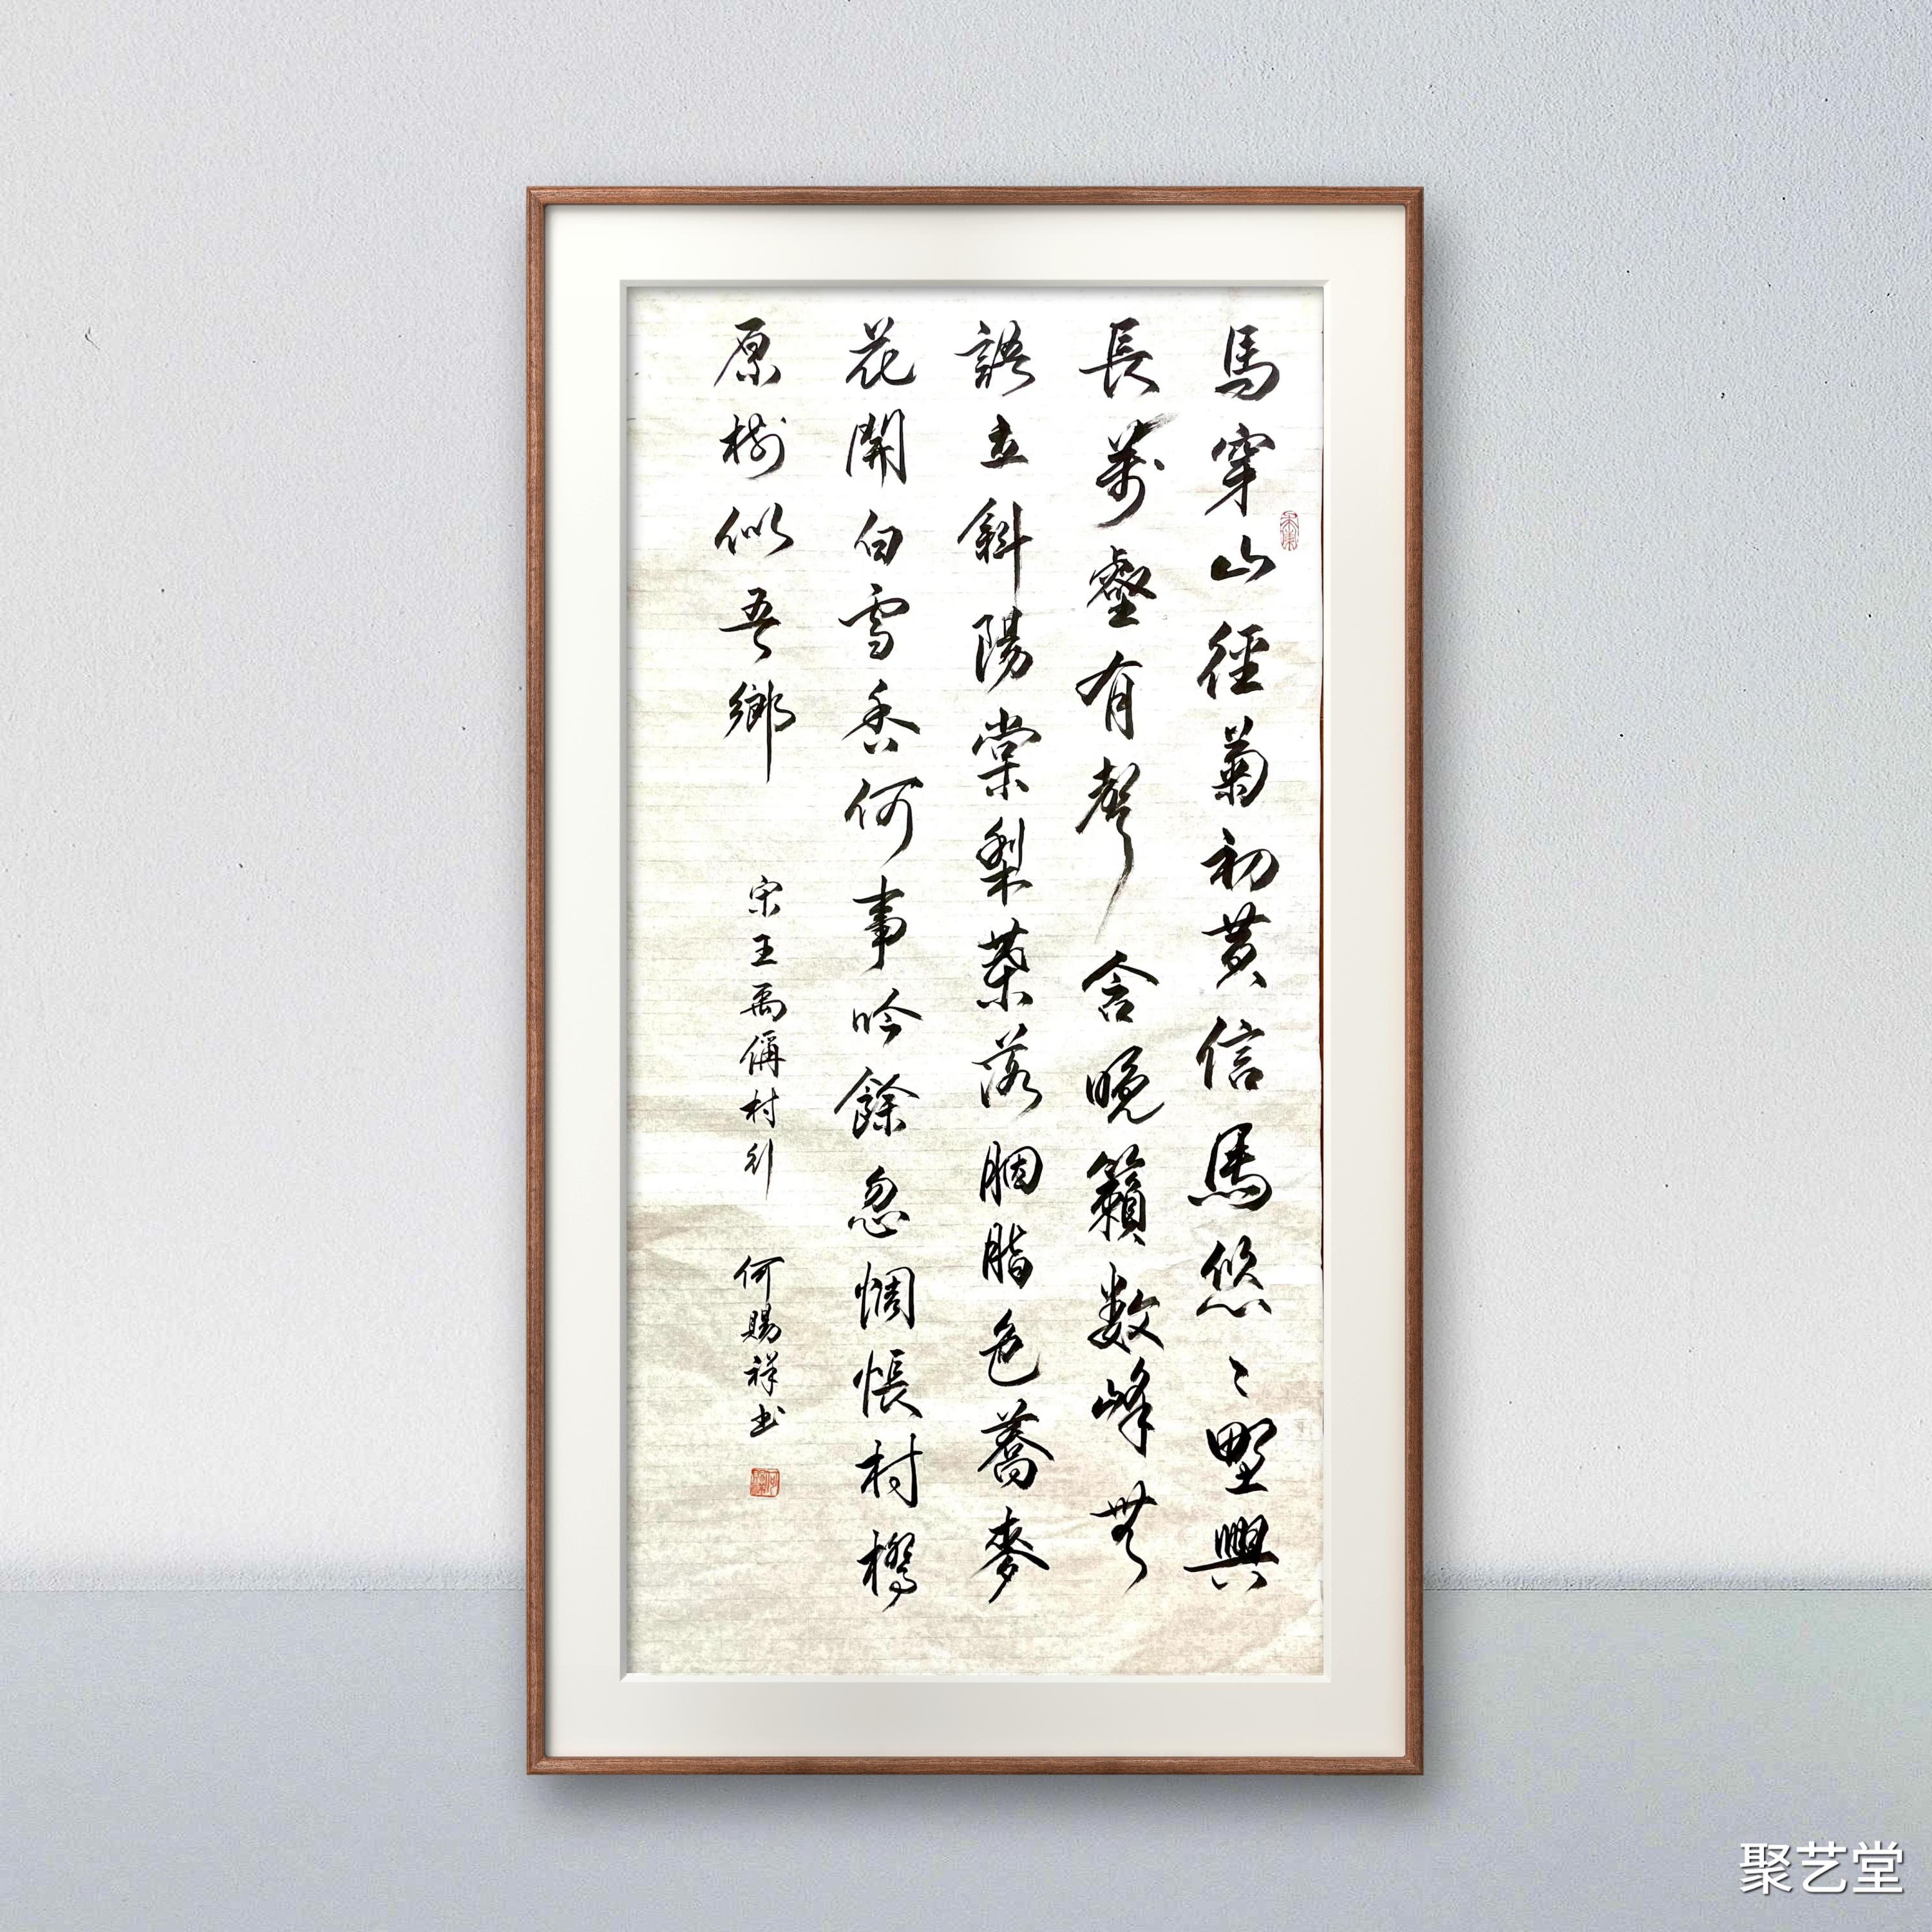 馬穿山徑菊初黃信馬悠〻野興
長萬壑有聲含晚籟數峰無
語立斜陽棠梨葉落胭脂色蕎麥
花開白雪香何事吟餘忽惆悵村橋
原樹似吾鄉
宋王禹偁村行
何賜祥书
聚艺堂